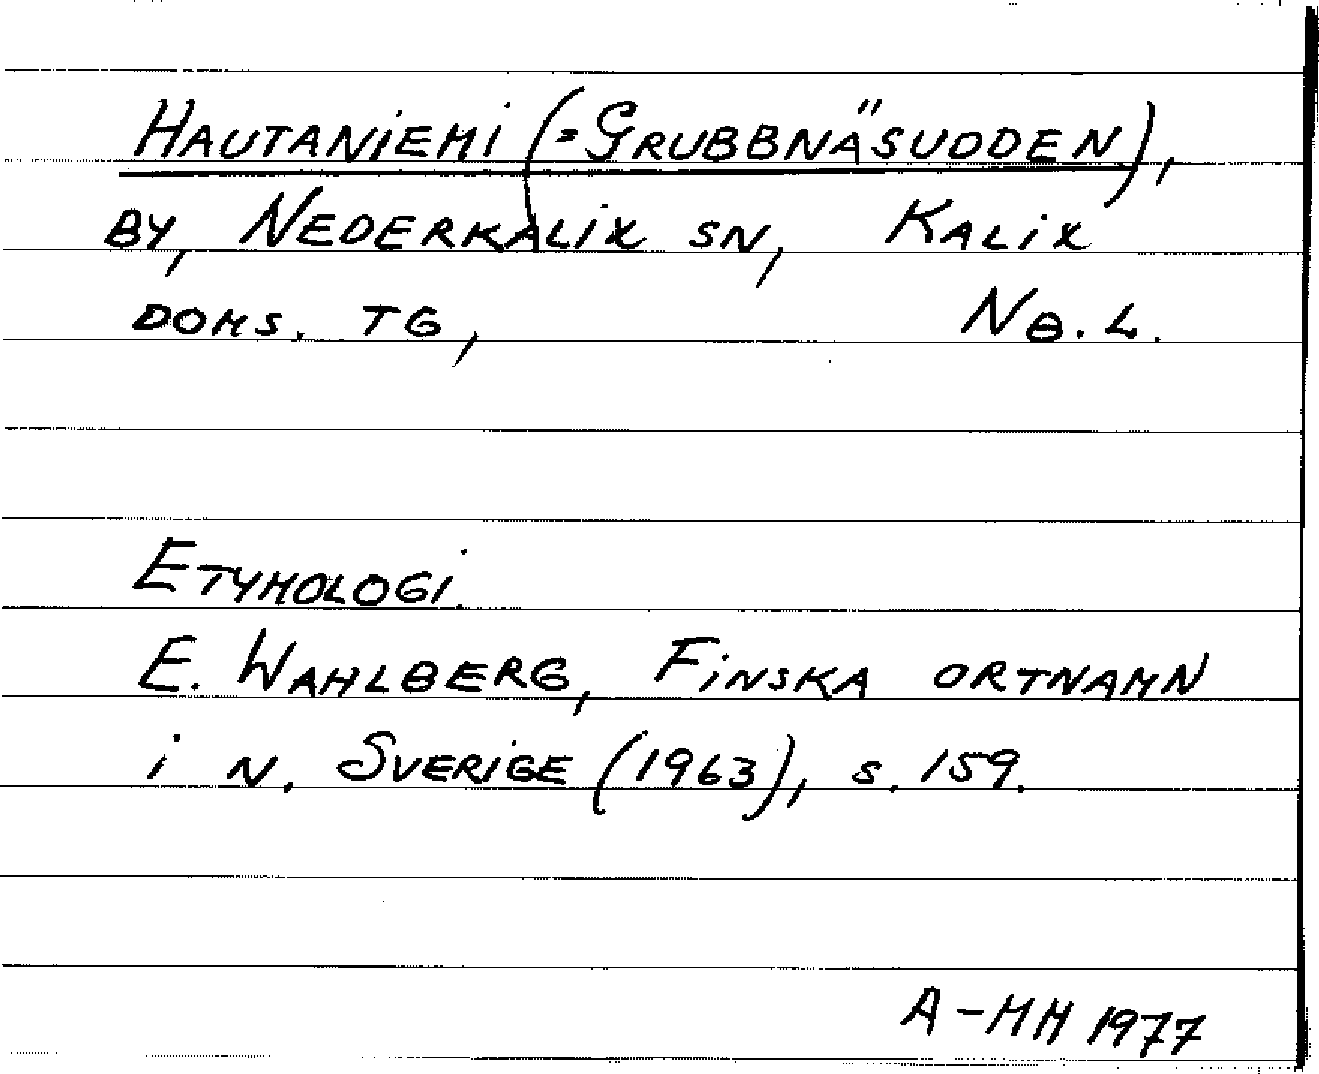 HAUTANIEMI (=GRUBBNÄSUDDEN),
BY, NEDERKALIX SN, KALIX
DOMS. TG, NB. L.
ETYMOLOGI.
E. WAHLBERG, FINSKA ORTNAMN
i N. SVERIGE (1963), s. 159.
A-MH 1977